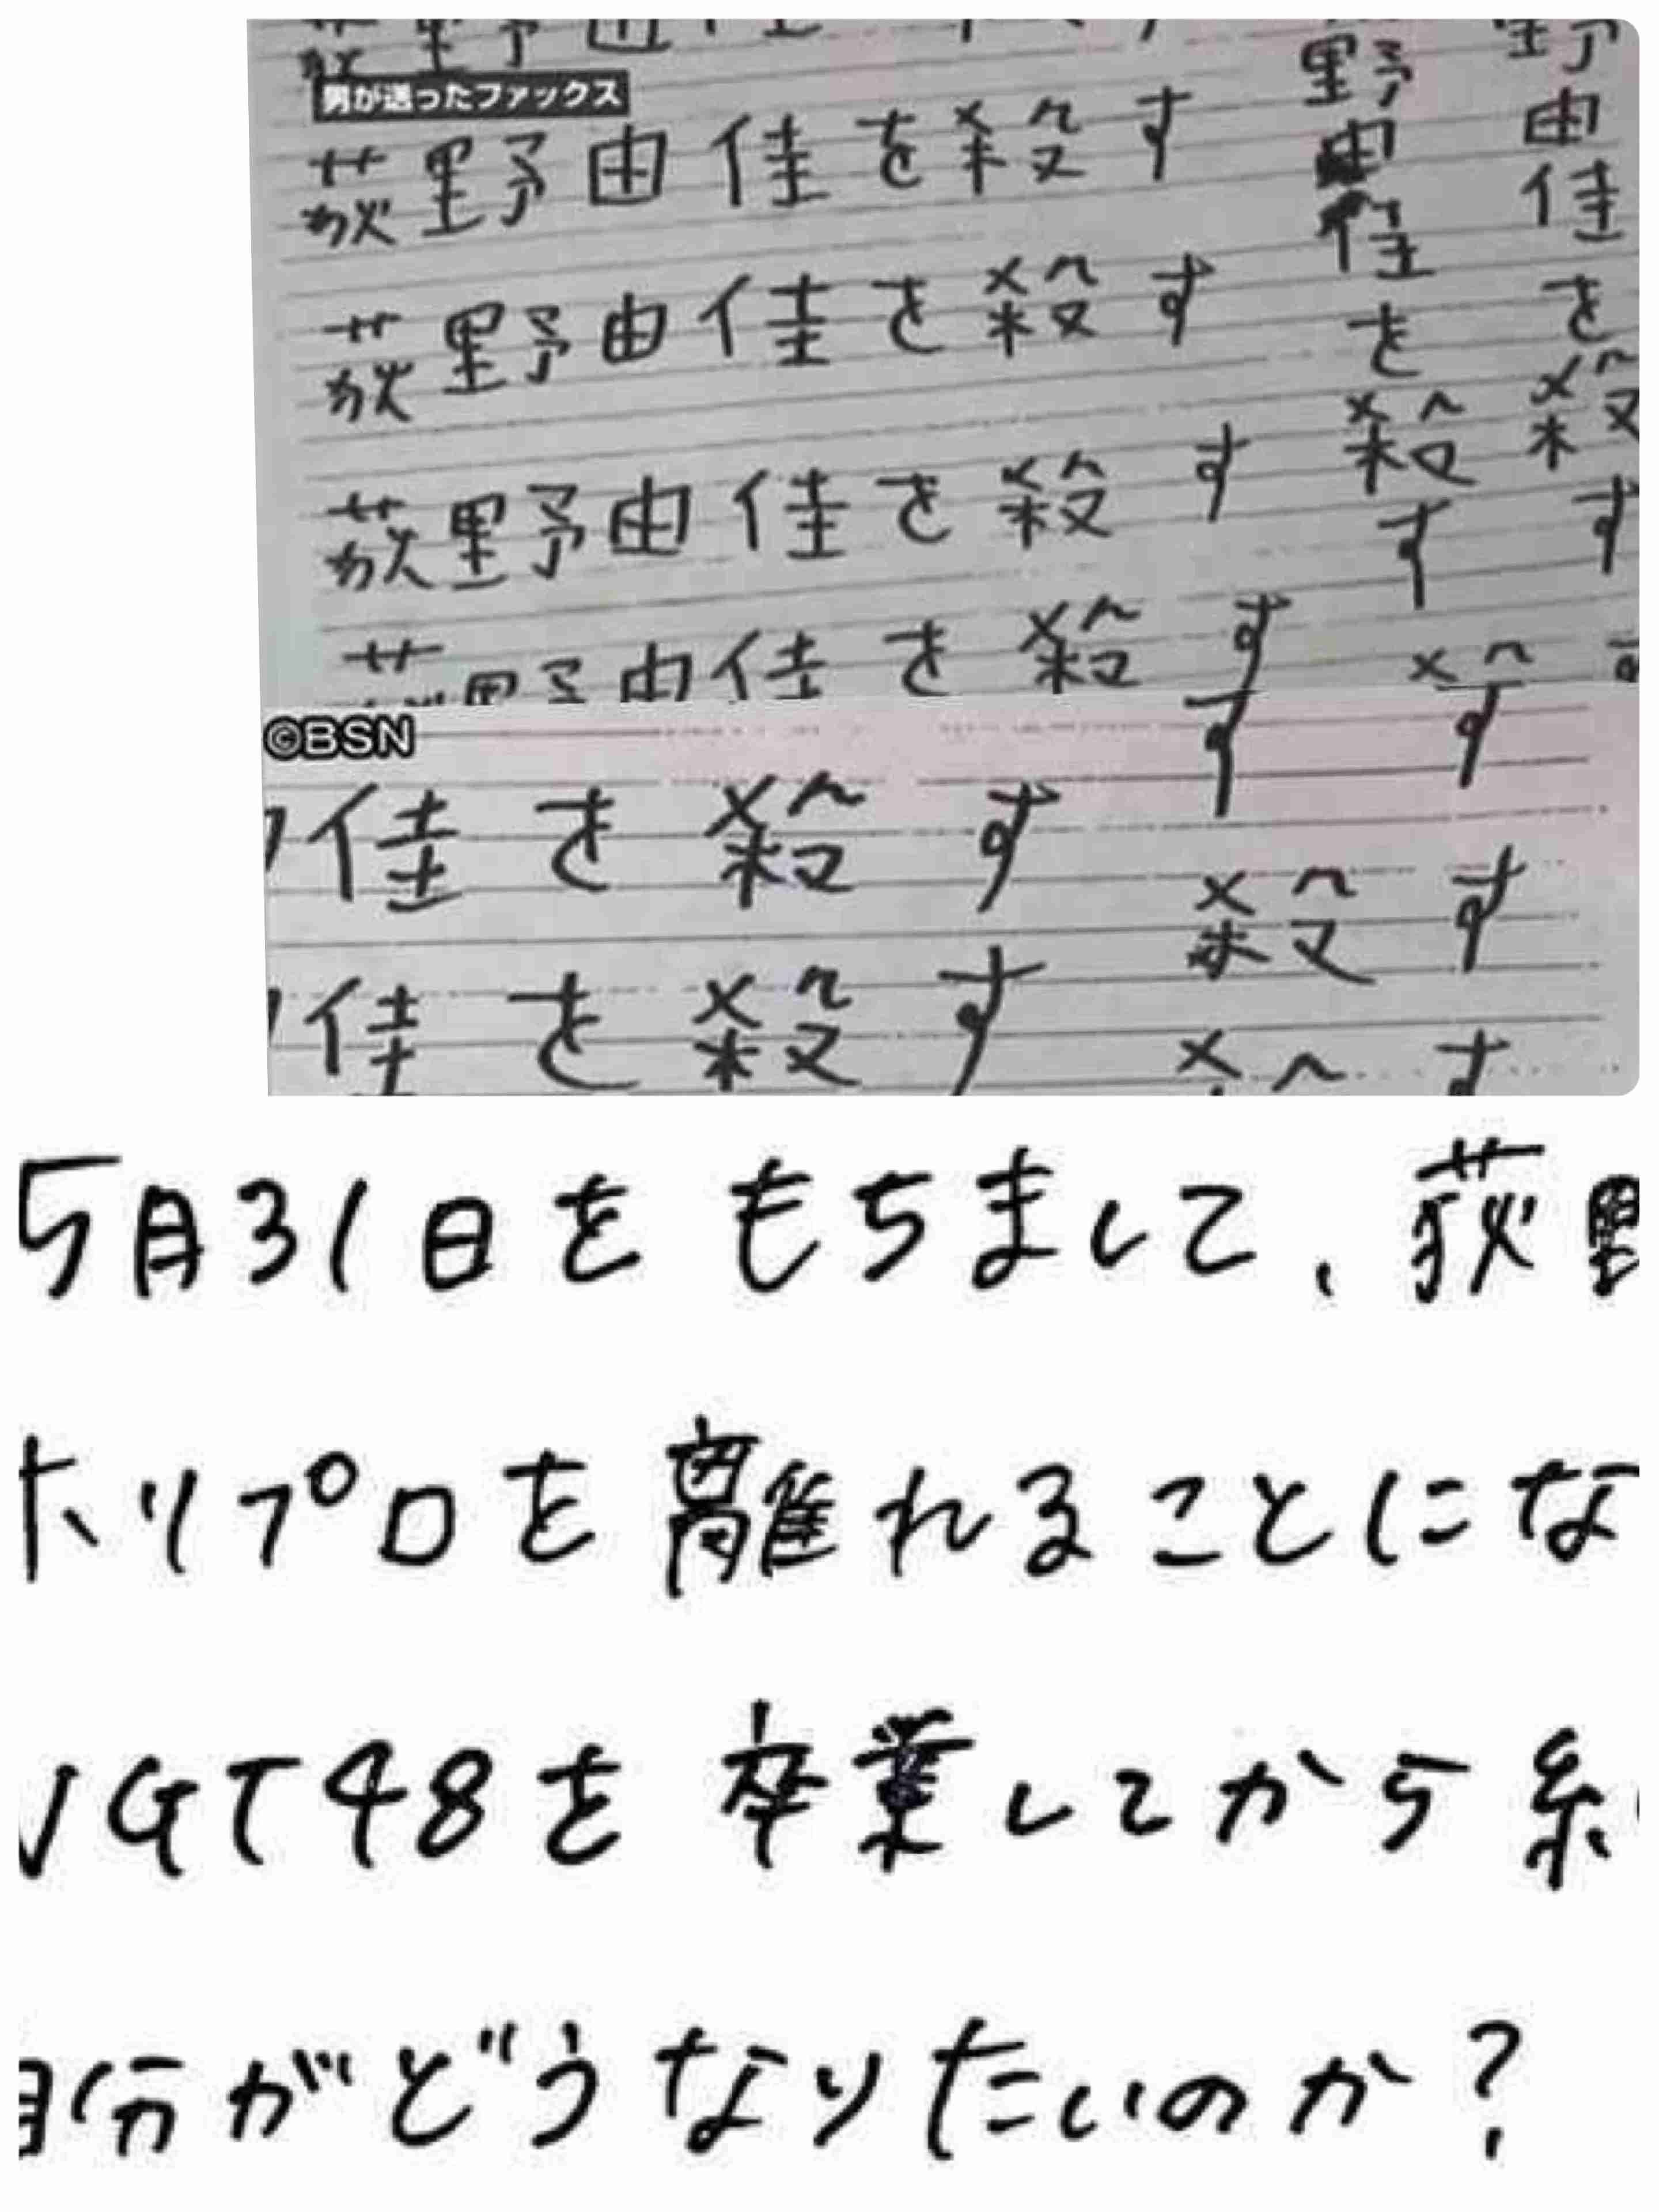 男が送ったファックス
荻野由佳を殺す
荻野由佳を殺す
荻野由佳を殺す
荻野由佳を殺す
野由佳を殺す
野由佳を殺す
殺す
©BSN
佳を殺す
佳を殺す
す
す
殺す
5月31日をもちまして、荻野
ホリプロを離れることにな
NGT48を卒業してから
自分がどうなりたいのか?